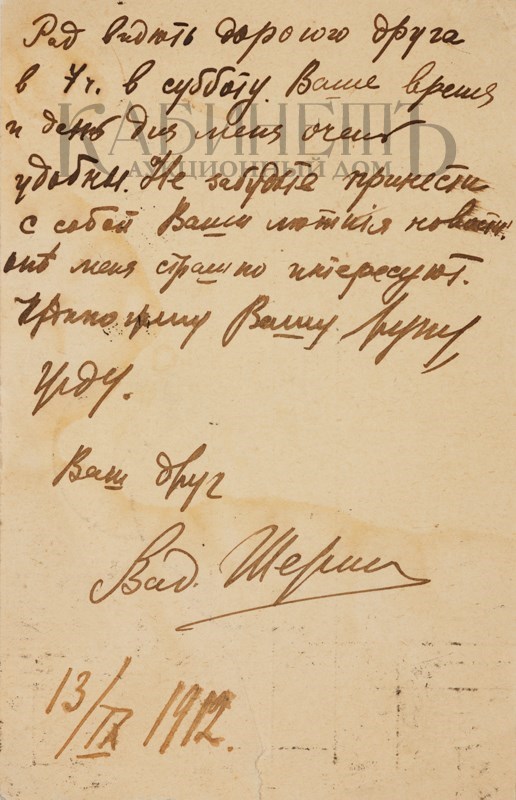 Рад видеть дорогого друга
в 7 ч. в субботу. Ваше время
и день для меня очень
удобны. Не забудьте принести
с собой Ваши новости.
онѣ меня страшно интересуют.
Вашу руку
жду.
Ваш друг
Вад. Шерш
13/IX 1912.
КАБИНЕТЪ
АУКЦИОННЫЙ ДОМ